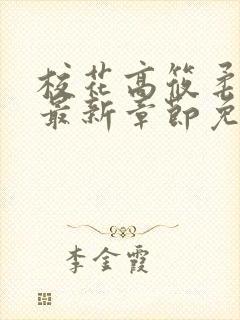 校花高筱柔
最新章节免
李金霞